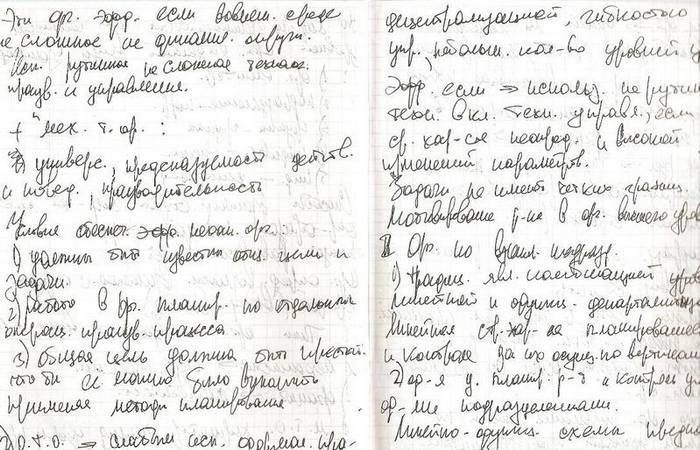 Эти ор. эфф. если во внеш. среде
не сложное не динамич. окруж.
Исп. рутинное не сложное технол.
произв. и управления.
+ "мех. т. ор. :
универс., предсказуемость действ.
и повед., производительность
Условия обеспеч. эфф. механ. орг.:
1) должны быть известны общ. цели и
задачи.
2) работа в ор. планир. по отдельным
операц. произв. процесса
3) общая цель должна быть простой.
чтобы её можно было выполнить
применяя методы планирования
О.т.о. => слабым исп. формал. пра-
децентрализацией, гибкостью
упр., небольш. кол-во уровней
эфф. если => использ. не рутин
техн. вкл. техн. управл., если
ср. хар-ся неопред. и высокой
изменений параметров.
Задачи не имеют четких границ.
Мотивирование р-ка в ор. высшего уров
II Ор. по взаим. подразд.
1) традиц. явл. комбинацией
линейной и функц. департамент
Линейная стр. хар-ся планированием
и контроля за их осущ. по вертикали
2) ор-я у. планир. р-т и контроль
ор-ми подразделениями.
Линейно-функц. схема